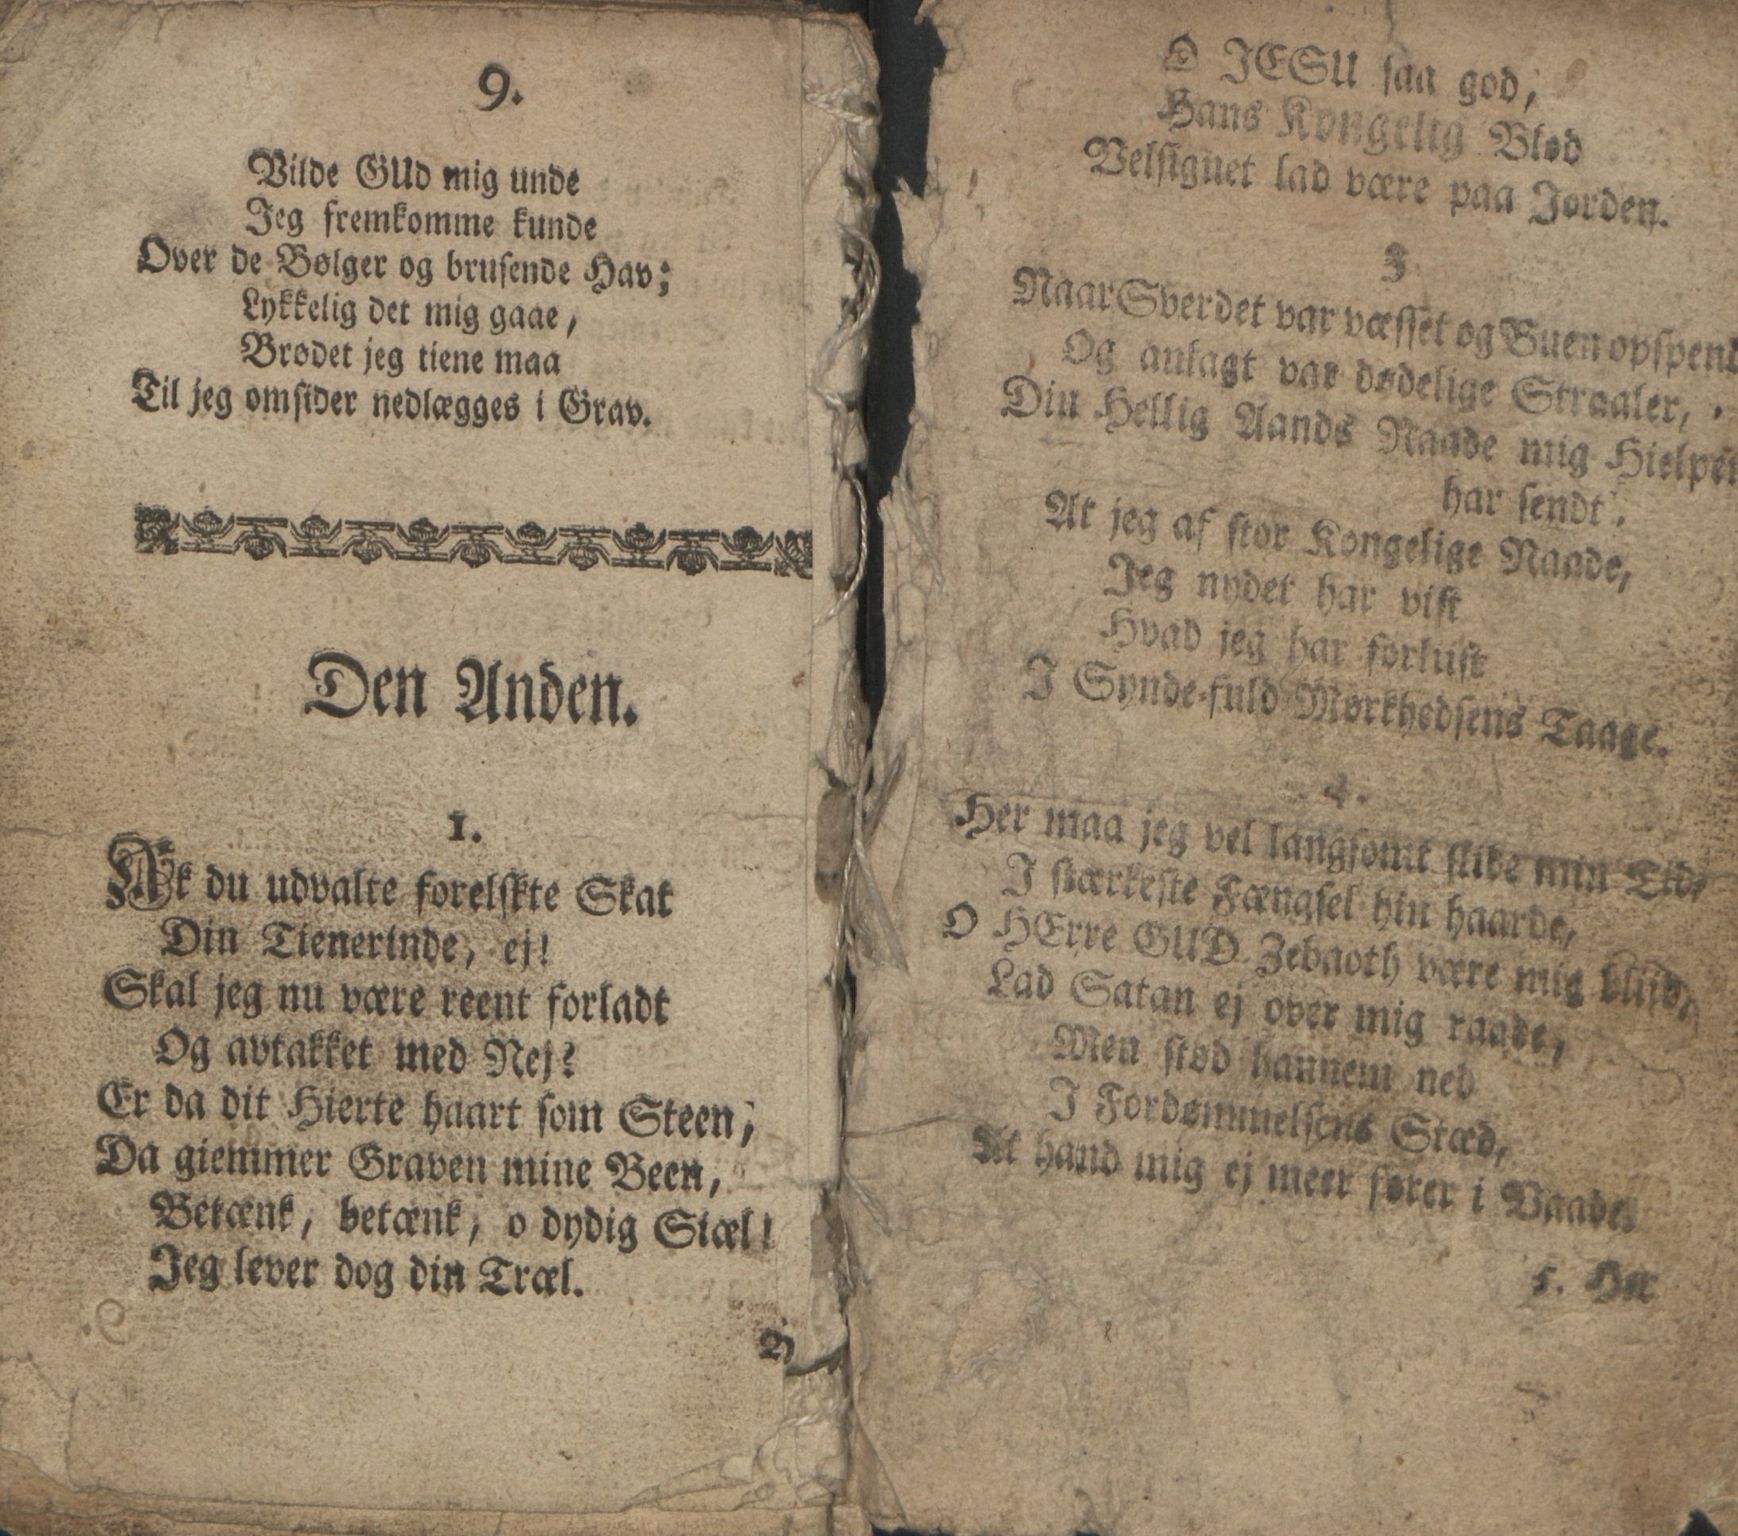 9.
Vilde GUd mig unde
Jeg fremkomme kunde
Over de Bølger og brusende Hav;
Lykkelig det mig gaae,
Brødet jeg tiene maa
Til jeg omsider nedlægges i Grav.
Den Anden.
1.
Ak du udvalte forelskte Skat
Din Tienerinde, ej!
Skal jeg nu være reent forladt
Og avtakket med Nej?
Er da dit Hierte haart som Steen,
Da giemmer Graven mine Been,
Betænk, betænk, o dydig Siæl!
Jeg lever dog din Træl.
O JESU saa god,
Hans Kongelig Blod
Velsignet lad være paa Jorden.
3
Naar Sverdet var væsset og Buen opspend
Og anlagt var dødelige Straaler,
Din Hellig Aands Naade mig Hielpen
har sendt.
At jeg af stor Kongelige Naade,
Jeg nydet har vist
Hvad jeg har forlist
I Synde-fuld Mørkhedsens Taage.
4.
Her maa jeg vel langsomt slide min Tid,
I stærkeste Fængsel hin haarde,
O HErre GUD Zebaoth være mig blijd,
Lad Satan ej over mig raade,
Men stød hannem ned
I Fordømmelsens Stæd,
At hand mig ej meer fører i Vaade.
5. Her